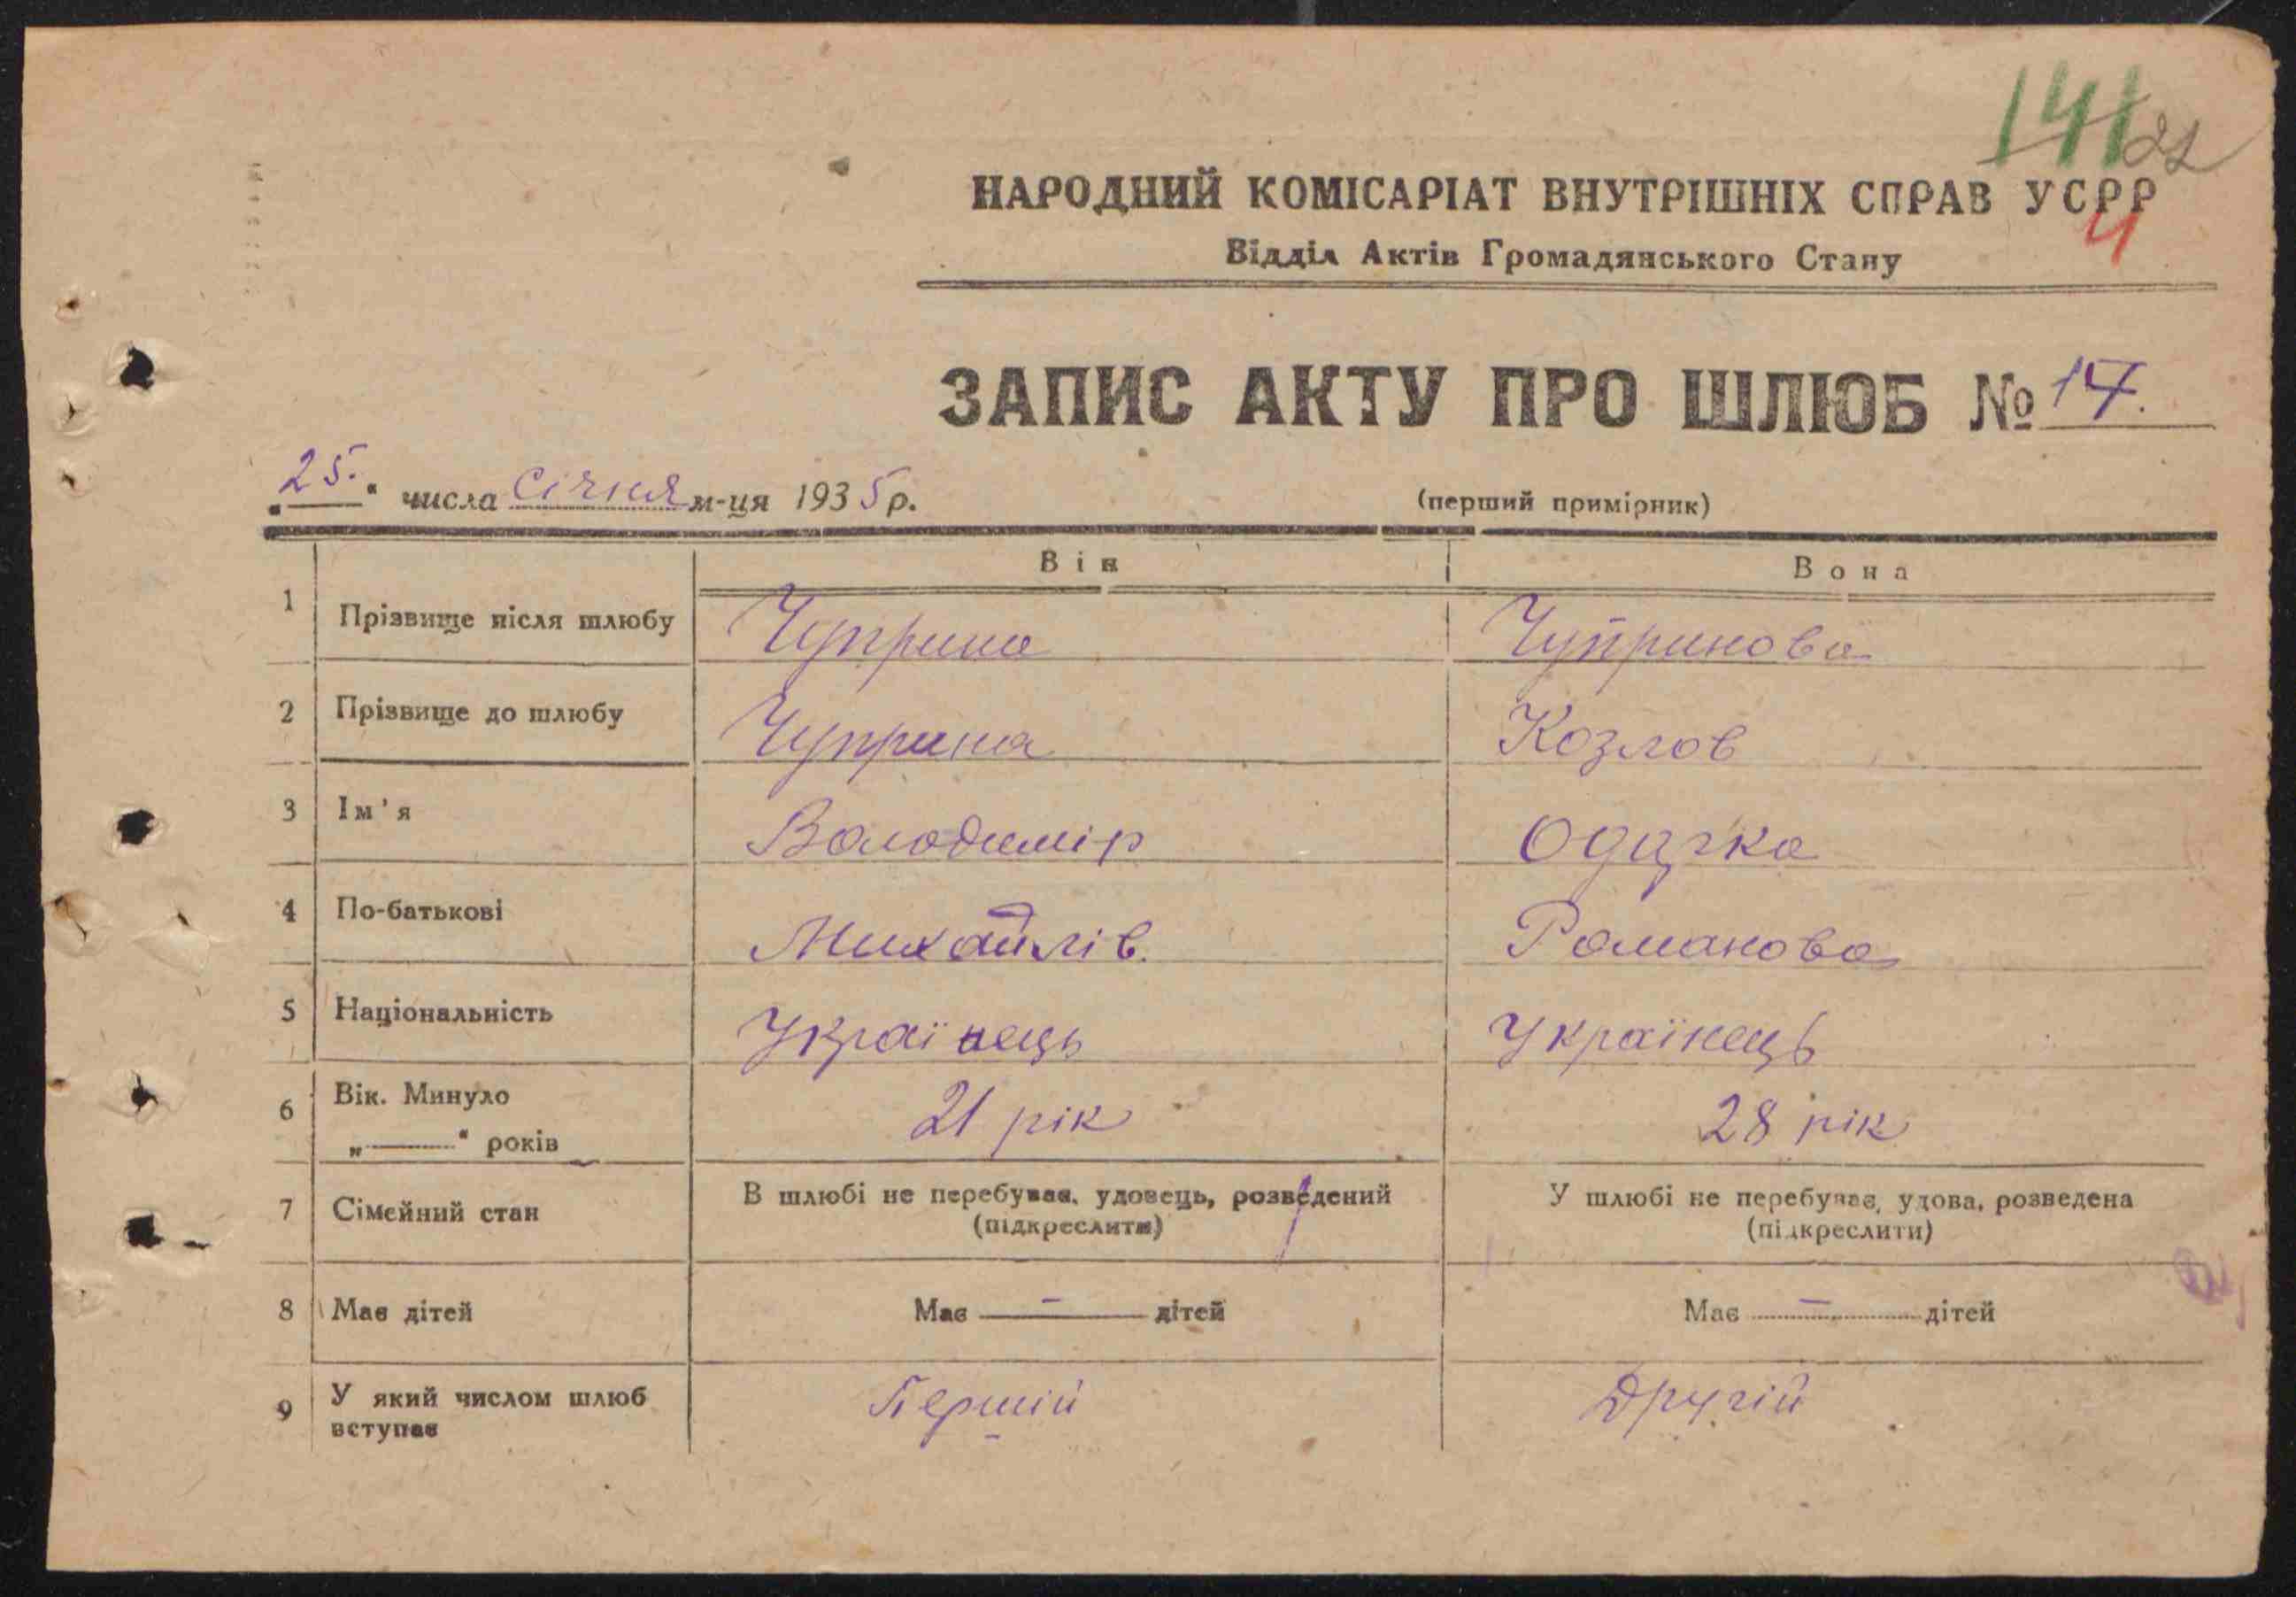 141
22
НАРОДНИЙ КОМІСАРІАТ ВНУТРІШНІХ СПРАВ УСРР
4
Відділ Актів Громадянського Стану
ЗАПИС АКТУ ПРО ШЛЮБ № 17.
„25." числа Січня м-ця 1935 р.
(перший примірник)
Він Вона
1 Прізвище після шлюбу Чуприна Чупринова
2 Прізвище до шлюбу Чуприна Козлов
3 Ім'я Володимір Одарка
4 По-батькові Михайлів. Романова
5 Національність Українець Українець
6 Вік. Минуло „——" років 21 рік 28 рік
7 Сімейний стан В шлюбі не перебував, удовець, розведений (підкреслити) У шлюбі не перебуває, удова, розведена (підкреслити)
8 Має дітей Має — дітей Має — дітей
9 У який числом шлюб вступає Першій Другій